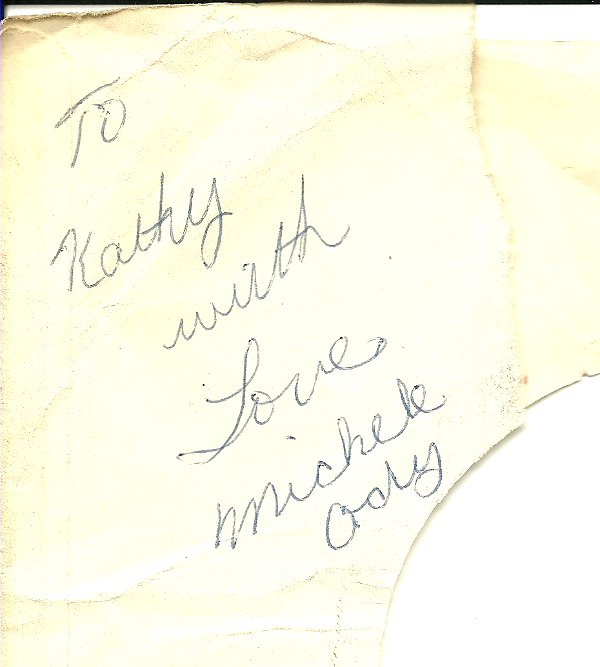 To
Kathy
with
Love
Michele
Ody